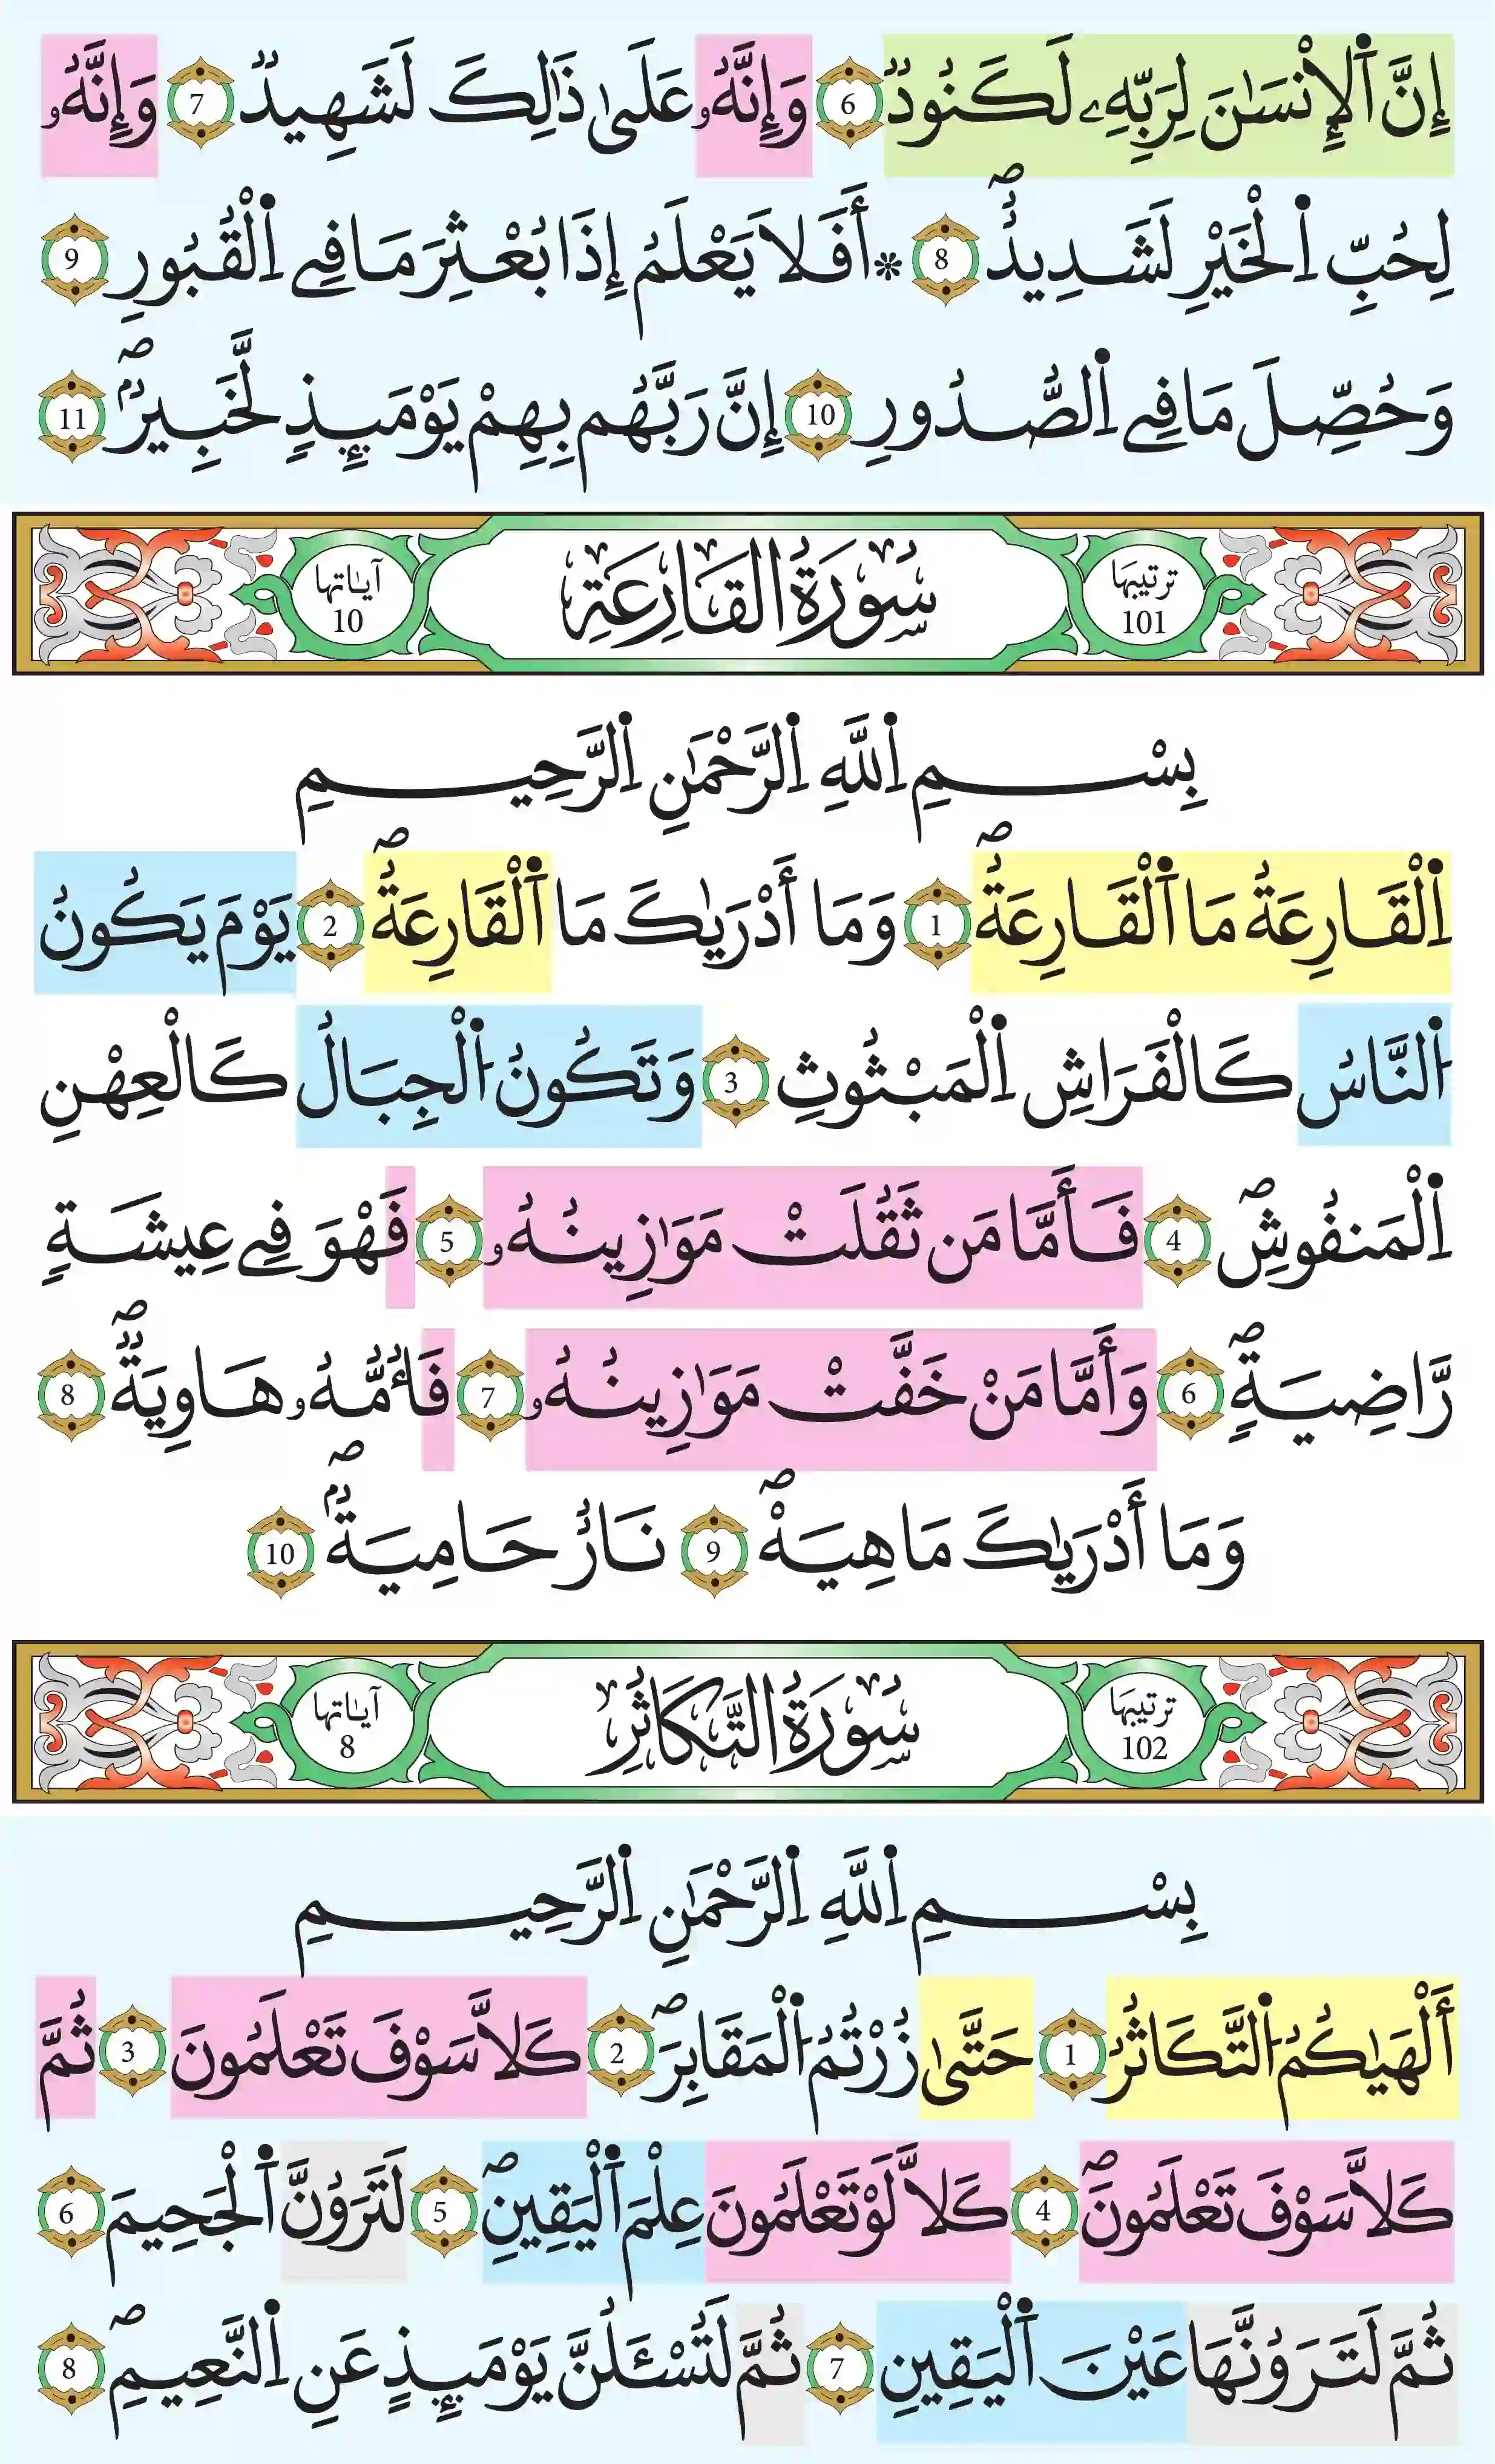 إِنَّ ٱلْإِنْسَٰنَ لِرَبِّهِۦ لَكَنُودٌ 6 وَإِنَّهُۥ عَلَىٰ ذَٰلِكَ لَشَهِيدٌ 7 وَإِنَّهُۥ
لِحُبِّ اِ۬لْخَيْرِ لَشَدِيدٌۖ 8 * أَفَلَا يَعْلَمُ إِذَا بُعْثِرَ مَا فِے اِ۬لْقُبُورِ 9
وَحُصِّلَ مَا فِے اِ۬لصُّدُورِ 10 إِنَّ رَبَّهُم بِهِمْ يَوْمَئِذٍ لَّخَبِيرٌۖ 11
ترتيبها 101 سُورَةُ القَارِعَةِ آياتها 10
بِسْمِ اِ۬للَّهِ اِ۬لرَّحْمَٰنِ اِ۬لرَّحِيمِ
اِ۬لْقَارِعَةُ مَا اَ۬لْقَارِعَةُۖ 1 وَمَا أَدْرَيٰكَ مَا اَ۬لْقَارِعَةُۖ 2 يَوْمَ يَكُونُ
اُ۬لنَّاسُ كَالْفَرَاشِ اِ۬لْمَبْثُوثِ 3 وَتَكُونُ اُ۬لْجِبَالُ كَالْعِهْنِ
اِ۬لْمَنفُوشِۖ 4 فَأَمَّا مَن ثَقُلَتْ مَوَٰزِينُهُۥ 5 فَهْوَ فِے عِيشَةٍ
رَّاضِيَةٍۖ 6 وَأَمَّا مَنْ خَفَّتْ مَوَٰزِينُهُۥ 7 فَأُمُّهُۥ هَاوِيَةٌۖ 8
وَمَا أَدْرَيٰكَ مَا هِيَهْۖ 9 نَارٌ حَامِيَةٌۖ 10
ترتيبها 102 سُورَةُ التَّكَاثُرِ آياتها 8
بِسْمِ اِ۬للَّهِ اِ۬لرَّحْمَٰنِ اِ۬لرَّحِيمِ
أَلْهَيٰكُمُ اُ۬لتَّكَاثُرُ 1 حَتَّىٰ زُرْتُمُ اُ۬لْمَقَابِرَۖ 2 كَلَّا سَوْفَ تَعْلَمُونَ 3 ثُمَّ
كَلَّا سَوْفَ تَعْلَمُونَۖ 4 كَلَّا لَوْ تَعْلَمُونَ عِلْمَ اَ۬لْيَقِينِۖ 5 لَتَرَوُنَّ اَ۬لْجَحِيمَ 6
ثُمَّ لَتَرَوُنَّهَا عَيْنَ اَ۬لْيَقِينِ 7 ثُمَّ لَتُسْـَٔلُنَّ يَوْمَئِذٍ عَنِ اِ۬لنَّعِيمِۖ 8